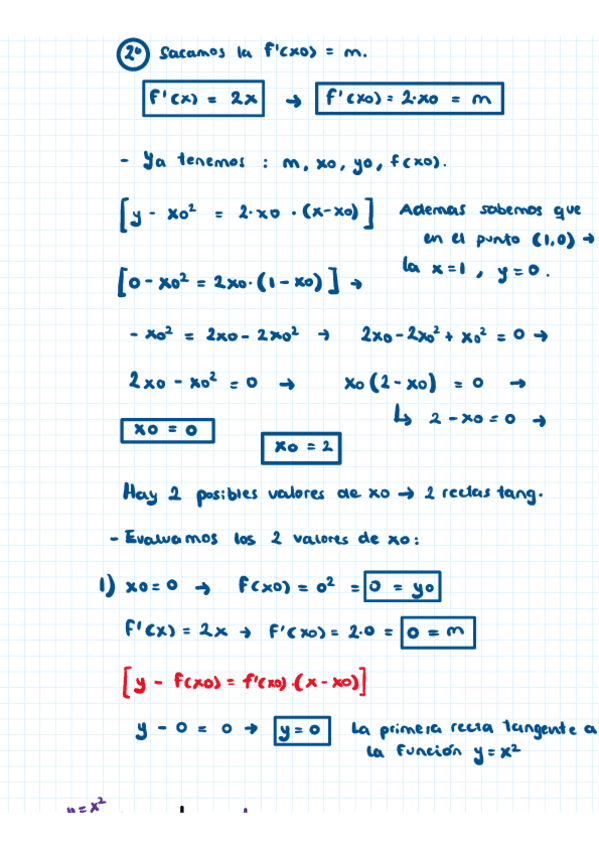 2º Sacamos la f'(x0) = m.
f'(x) = 2x → f'(x0) = 2·x0 = m
- Ya tenemos : m, x0, y0, f(x0).
[y - x0² = 2·x0 · (x-x0)] Ademas sabemos que
en el punto (1,0) →
la x=1 , y=0.
[0 - x0² = 2x0·(1 - x0)] →
- x0² = 2x0 - 2x0² → 2x0 - 2x0² + x0² = 0 →
2x0 - x0² = 0 → x0(2 - x0) = 0 →
↳ 2 - x0 = 0 →
x0 = 0
x0 = 2
Hay 2 posibles valores de x0 → 2 rectas tang.
- Evaluamos los 2 valores de x0:
1) x0 = 0 → f(x0) = 0² = 0 = y0
f'(x) = 2x → f'(x0) = 2·0 = 0 = m
[y - f(x0) = f'(x0)·(x - x0)]
y - 0 = 0 → y = 0 La primera recta tangente a
la función y = x²
y = x²